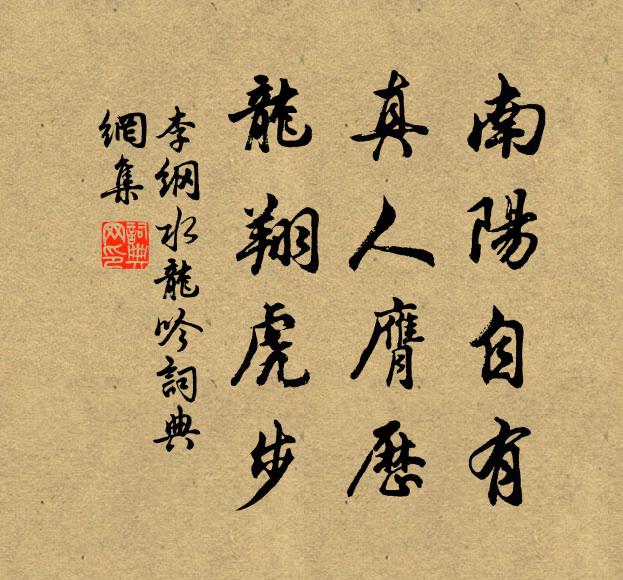 南陽自有
真人膺歷
龍翔虎步
李綱水龍吟詞典
網集
詞典網印